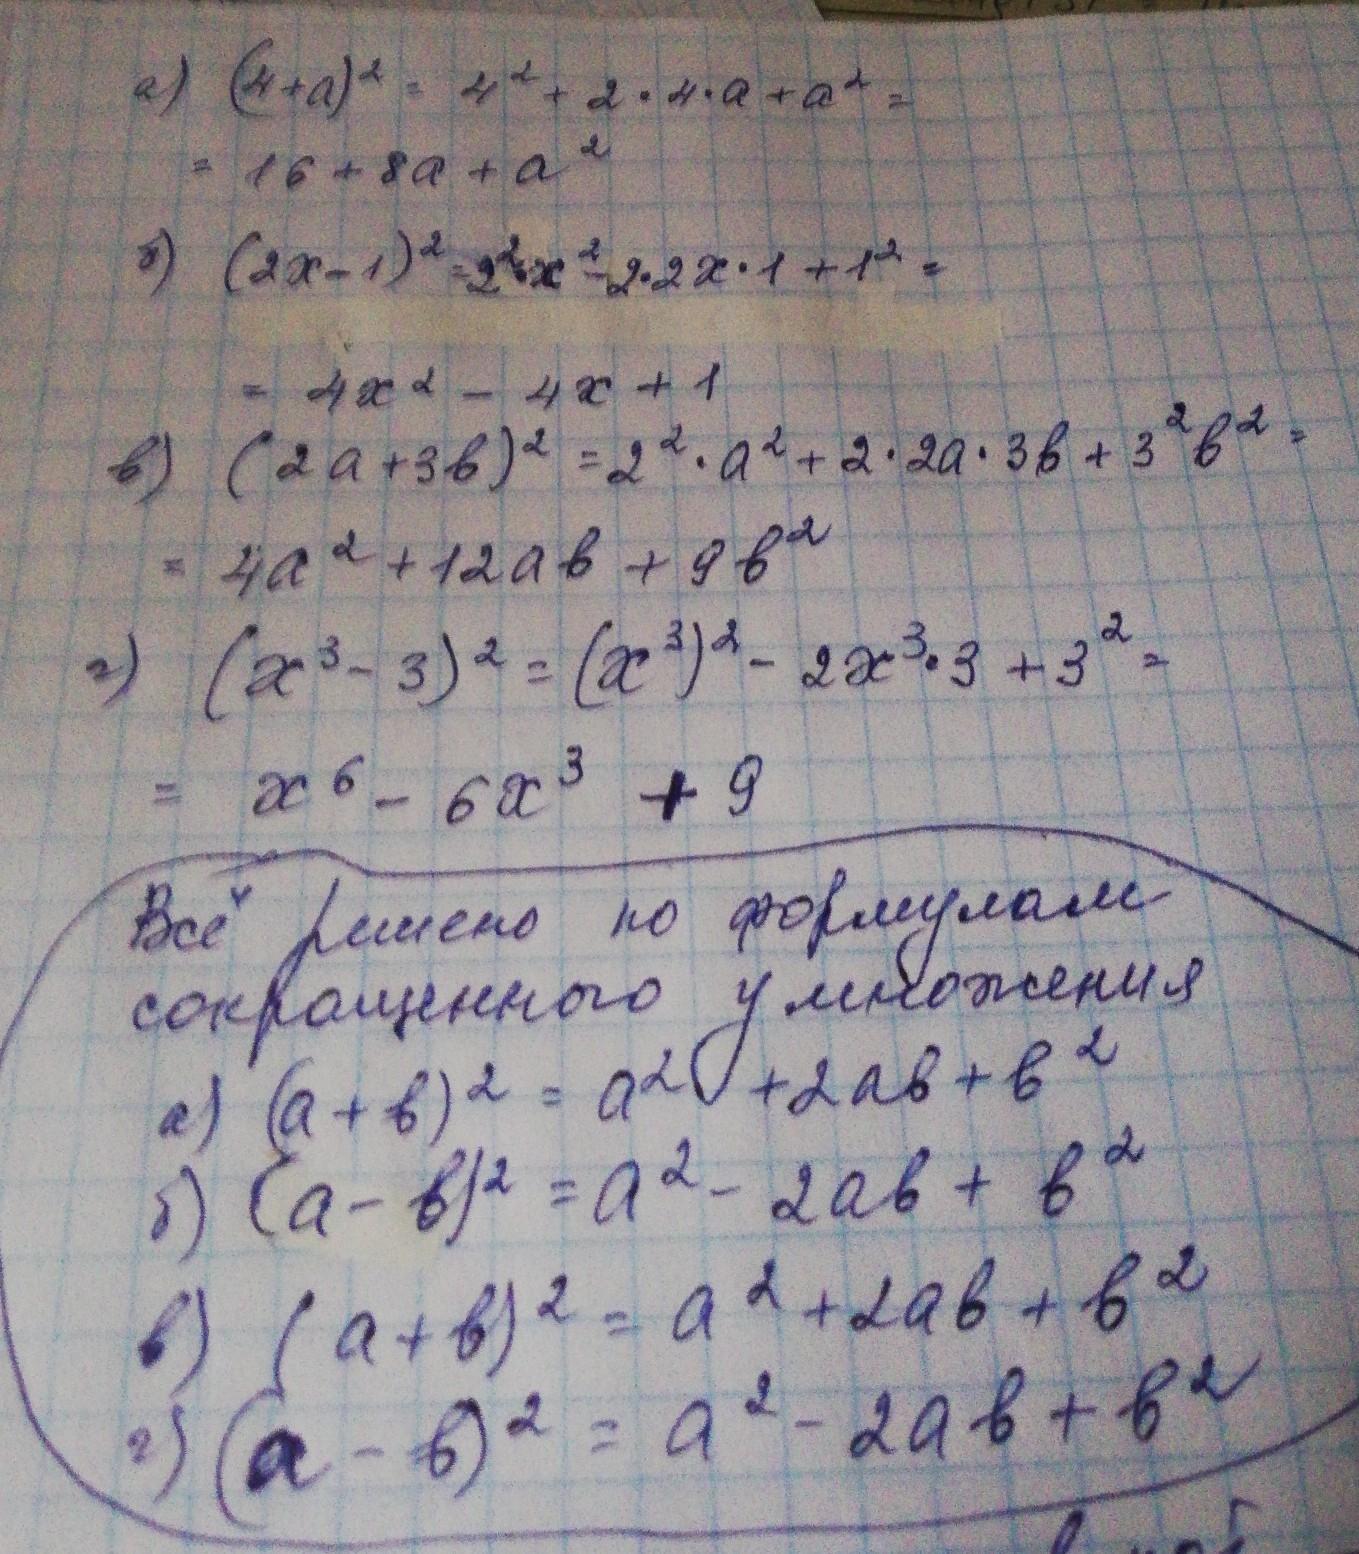 а) (4+a)² = 4² + 2·4·a + a² =
= 16 + 8a + a²
б) (2x-1)² = 2²·x² - 2·2x·1 + 1² =
= 4x² - 4x + 1
в) (2a+3в)² = 2²·a² + 2·2a·3в + 3²в² =
= 4a² + 12aв + 9в²
г) (x³ - 3)² = (x³)² - 2x³·3 + 3² =
= x⁶ - 6x³ + 9
Всё решено по формулам
сокращенного умножения
а) (a+в)² = a² + 2aв + в²
б) (a - в)² = a² - 2aв + в²
в) (a+в)² = a² + 2aв + в²
г) (a - в)² = a² - 2aв + в²